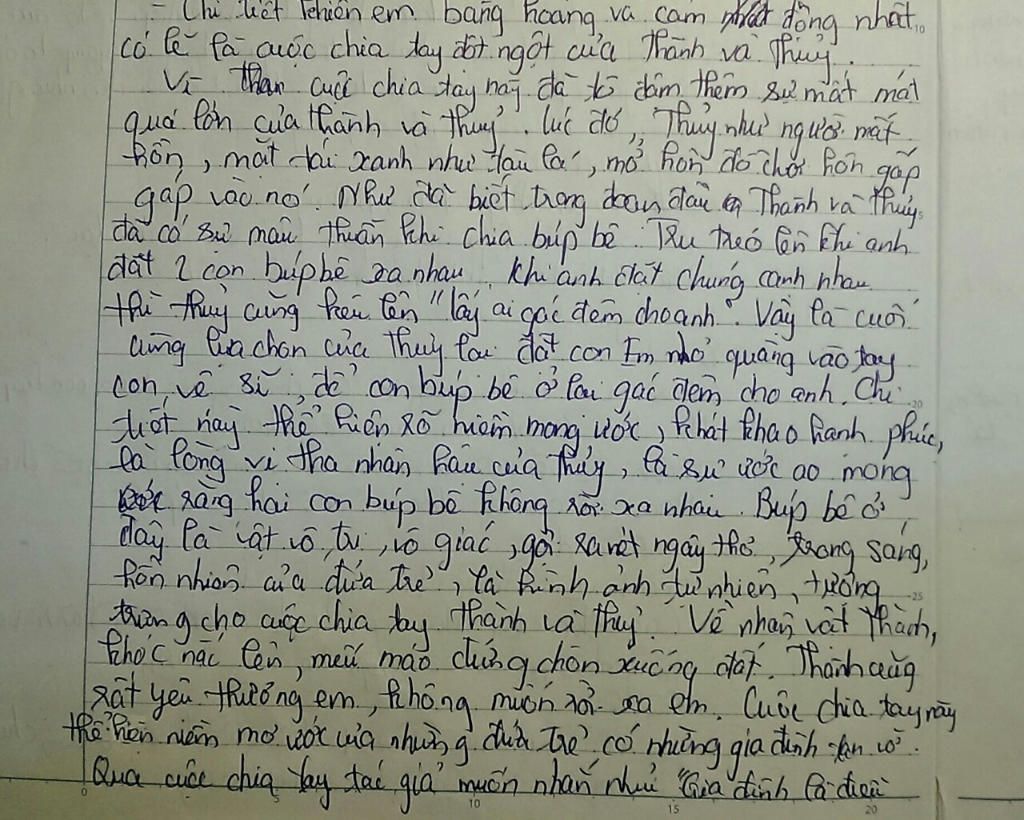 - Chi tiết khiến em bàng hoàng và cảm động nhất
có lẽ là cuộc chia tay đột ngột của Thành và Thuỷ.
Vì cuộc chia tay này đã tô đậm thêm sự mất mát
quá lớn của thành và thuỷ. lúc đó, Thuỷ như người mất
hồn, mặt tái xanh như tàu lá, mở hòn đồ chơi hòn gặp
gấp vào nó. Như đã biết trong đoạn đầu Thành và thuỷ
đã có sự mâu thuẫn khi chia búp bê. Tru tréo lên khi anh
đặt 2 con búp bê xa nhau. khi anh đặt chúng cạnh nhau
thì thuỷ cũng kêu lên "lấy ai gác đêm cho anh". Vậy là cuối
cùng lựa chọn của thuỷ lại đặt con Em nhỏ quàng vào tay
con vệ sĩ, để con búp bê ở lại gác đêm cho anh. Chi
tiết này thể hiện rõ niềm mong ước, khát khao hạnh phúc,
là lòng vị tha nhân hậu của thuỷ, là sự ước ao mong
rằng hai con búp bê không rời xa nhau. Búp bê ở
đây là vật vô tri, vô giác, gợi ra nét ngây thơ, trong sáng,
hồn nhiên của đứa trẻ, là hình ảnh tự nhiên, tượng
trưng cho cuộc chia tay thành và thuỷ. Về nhân vật Thành,
khóc nấc lên, mếu máo đứng chôn xuống đất. Thành cũng
rất yêu thương em, không muốn rời xa em. Cuộc chia tay này
thể hiện niềm mơ ước của những đứa trẻ có những gia đình tan vỡ.
Qua cuộc chia tay tác giả muốn nhắn nhủ "Gia đình là điều
5
10
15
20
20
25